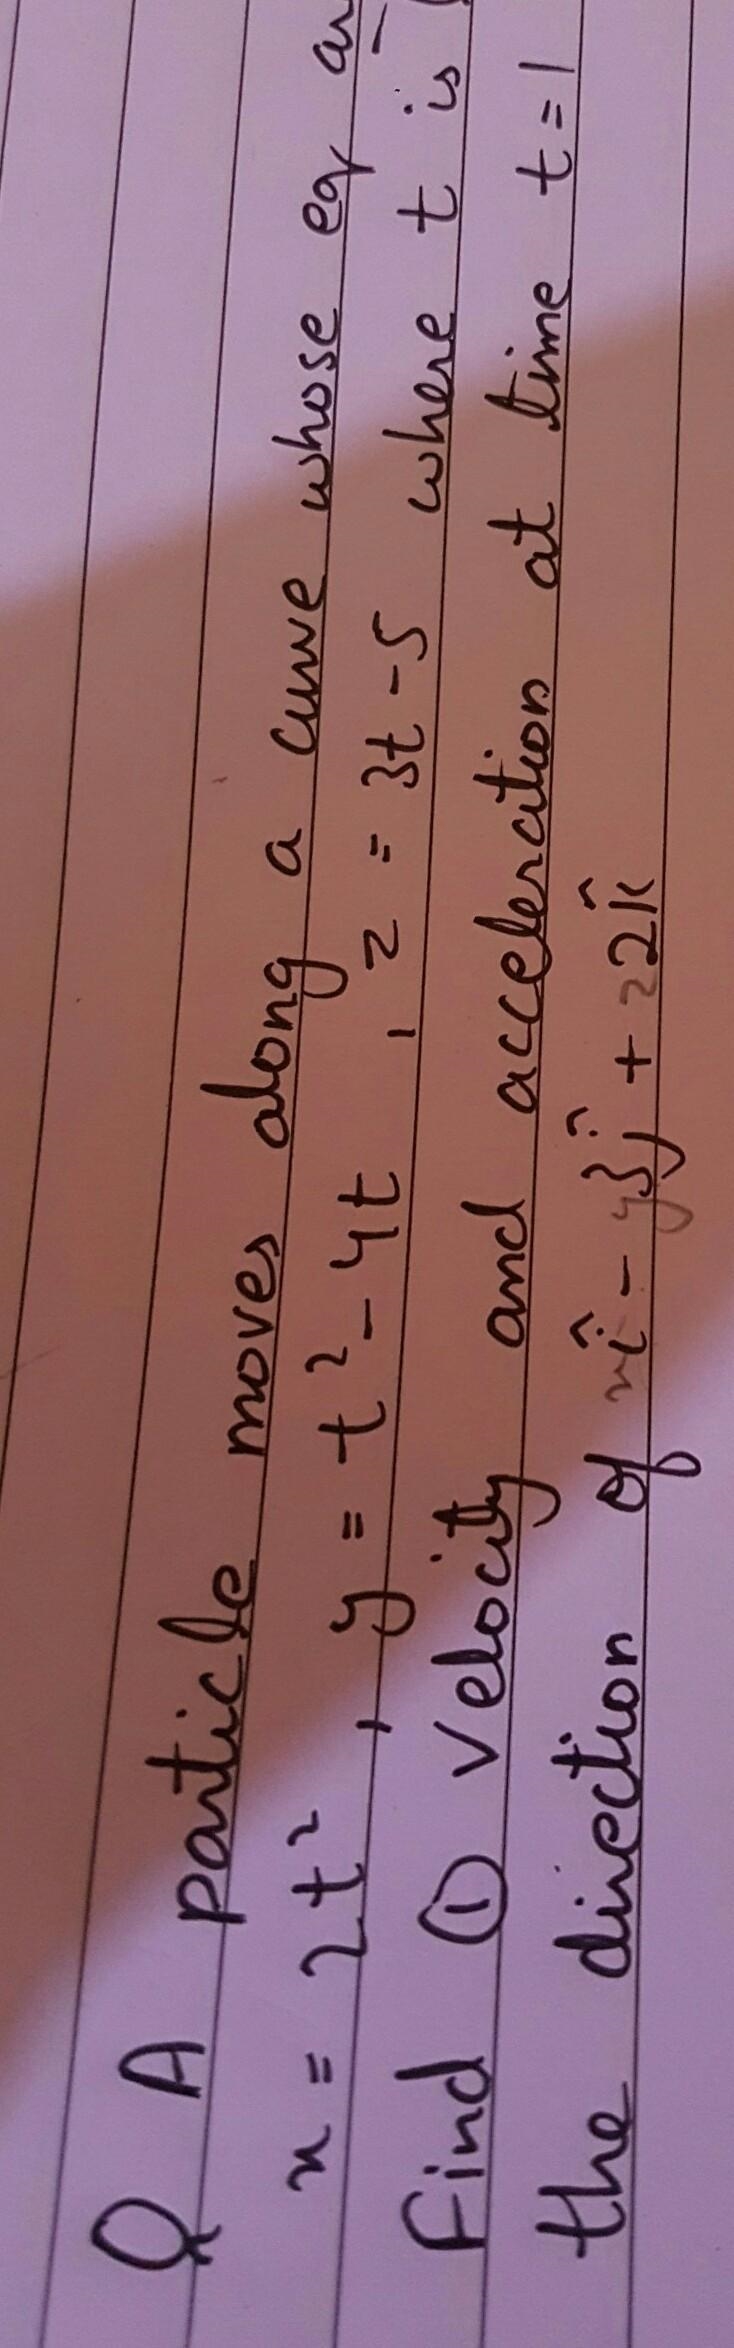 Q A particle moves along a curve whose eq
x = 2t², y = t² - 4t, z = 3t - 5 where t is
Find ① velocity and acceleration at time t = 1
the direction of î - 3ĵ + 2k̂